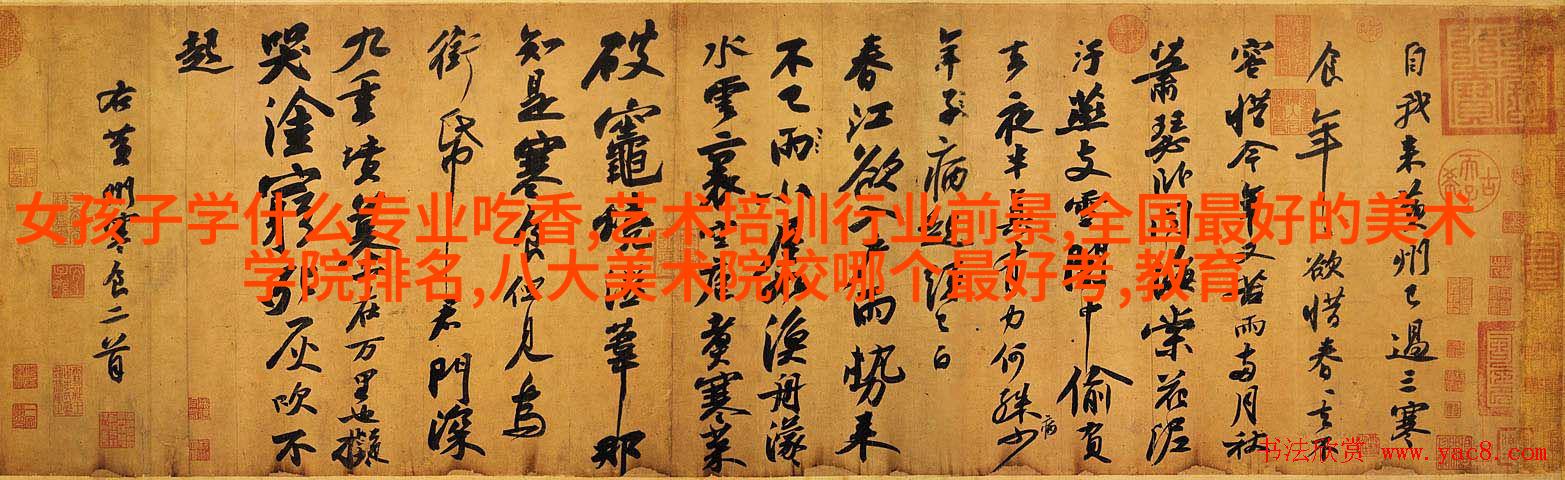 自我来黄州已過三寒
食年〻欲惜春〻去不
容惜今年又苦雨兩月秋
蕭瑟卧聞海棠花泥
汙燕支雪闇中偷負
去夜半真有力何殊少病
年子病起頭已白
春江欲入户雨勢来
不已雨小屋如漁舟濛〻
水雲裏空庖煮寒菜
破竈燒濕葦那
知是寒食但見烏
銜帋君門深
九重墳墓在万里也擬
哭塗窮死灰吹不
起
右黄州寒食二首
女孩子学什么专业吃香,艺术培训行业前景,全国最好的美术
学院排名,八大美术院校哪个最好考,教育
书法欣赏 www.yac8.com